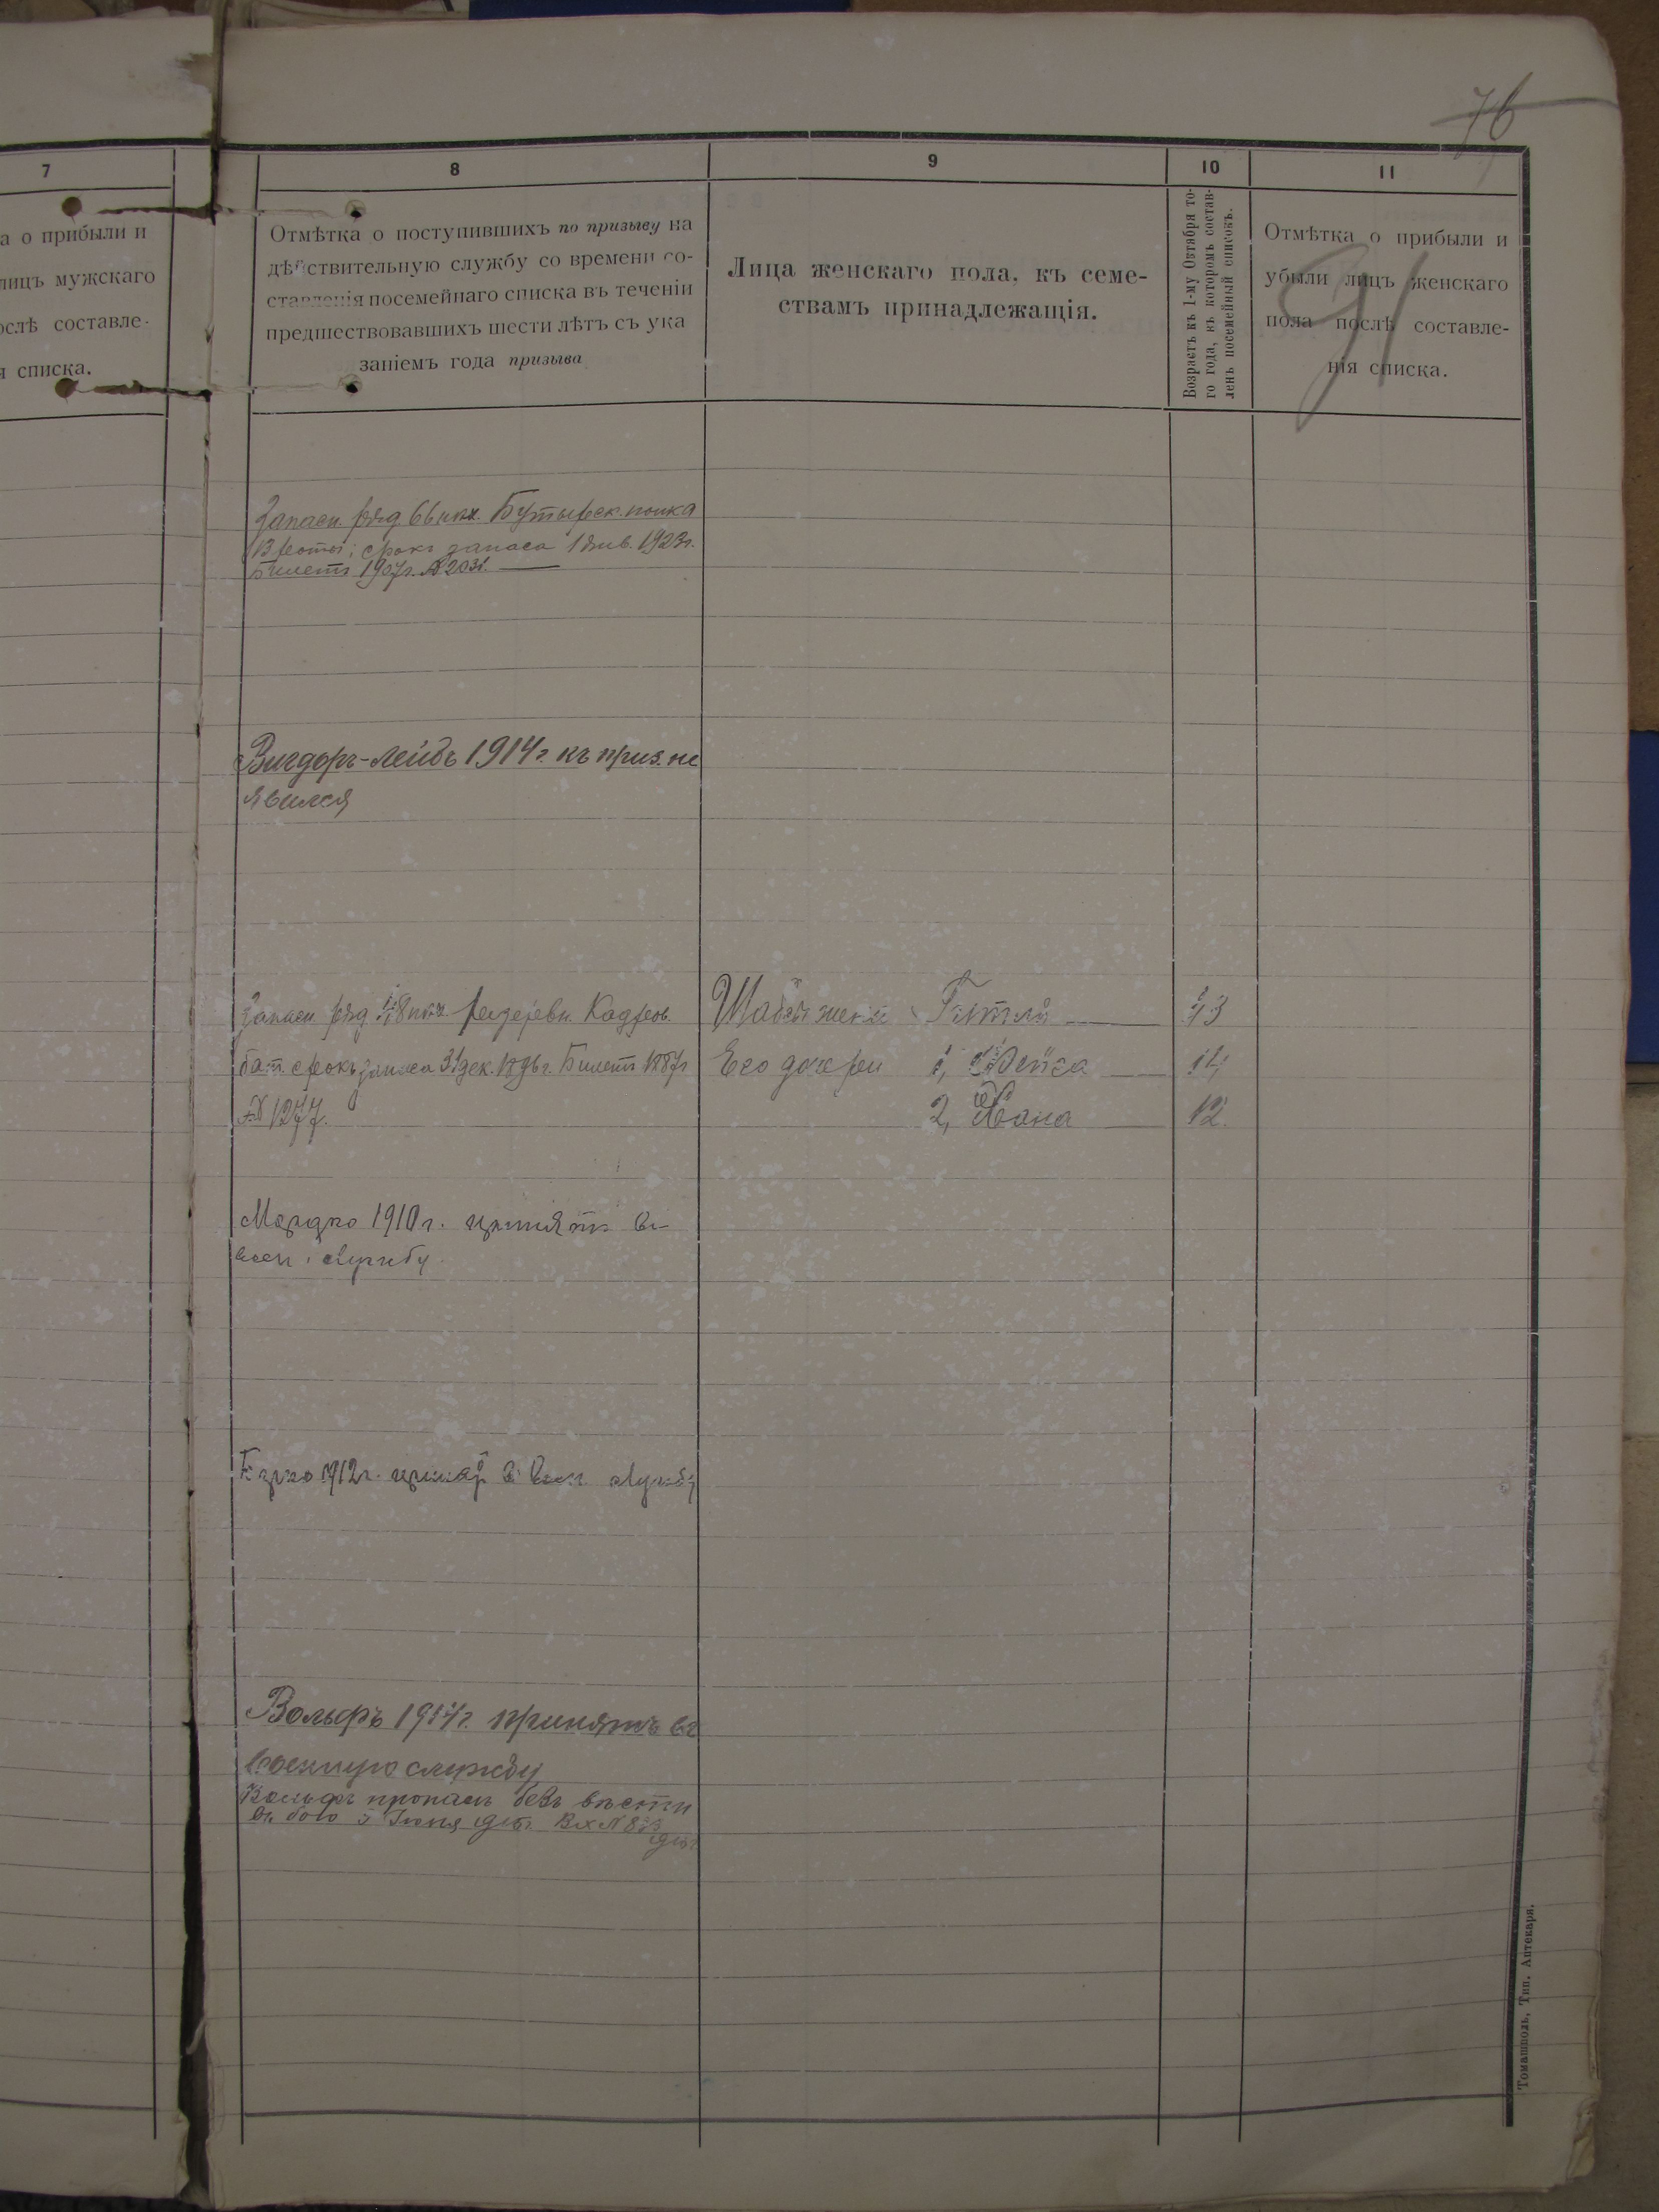 76
7
8
9
10
11
а о прибыли и
лицъ мужскаго
ослѣ составле-
я списка.
Отмѣтка о поступившихъ по призыву на
дѣйствительную службу со времени со-
ставленія посемейнаго списка въ теченіи
предшествовавшихъ шести лѣтъ съ ука
заніемъ года призыва
Лица женскаго пола, къ семе-
ствамъ принадлежащія.
Возрастъ къ 1-му Октября то-
го года, къ которомъ состав-
ленъ посемейный списокъ.
Отмѣтка о прибыли и
убыли лицъ женскаго
пола послѣ составле-
нія списка.
91
Запасн. ряд. 66 пѣх. Бутырск. полка
13 роты; срокъ запаса 1 янв. 1923г.
Билетъ 1907г. №
Вигдоръ-Лейбъ 1914г. къ приз. не
явился
Запасн. ряд. пѣх. резервн. Кадров.
бат. срокъ запаса 31 дек. 1896г. Билетъ 1887г
№ 1277.
жена Гитля 43
Его дочери 1, Рейза 14
2, Хана 12.
Мордко 1910г. принятъ въ
воен. службу.
1912г. принят въ воен. службу
Вольфъ 1914г. принятъ въ
военную службу
Вольфъ пропалъ безъ вѣсти
въ бою Іюня 915г. Вх №
915г
Томашполь, Тип. Аптекаря.